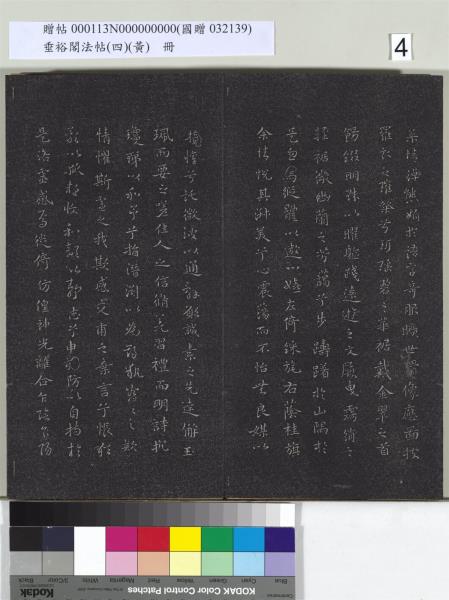 贈帖 000113N000000000(國贈 032139)
垂裕閣法帖(四)(黃) 冊
4
柔情綽態媚於語言奇服曠世骨像應圖披
羅衣之璀粲兮珥瑤碧之華裾戴金翠之首
飾綴明珠以曜軀踐遠遊之文履曳霧綃之
輕裾微幽蘭之芳藹兮步踟躕於山隅於
是忽焉縱體以遨以嬉左倚綵旄右蔭桂旗
余情悅其淑美兮心震蕩而不怡無良媒以
接懽兮託微波以通辭願誠素之先達解玉
珮而要之嗟佳人之信脩羌習禮而明詩抗
瓊珶以和予兮指潛淵以為期執眷眷之款
情懼斯靈之我欺感交甫之棄言兮悵猶
豫以狐疑收和顏以靜志兮申禮防以自持於
是洛靈感焉徙倚彷徨神光離合乍陰乍陽
Blue
Cyan
Green
Yellow
Red
Magenta
White
3/Color
Black
Kodak
KODAK Color Control Patches